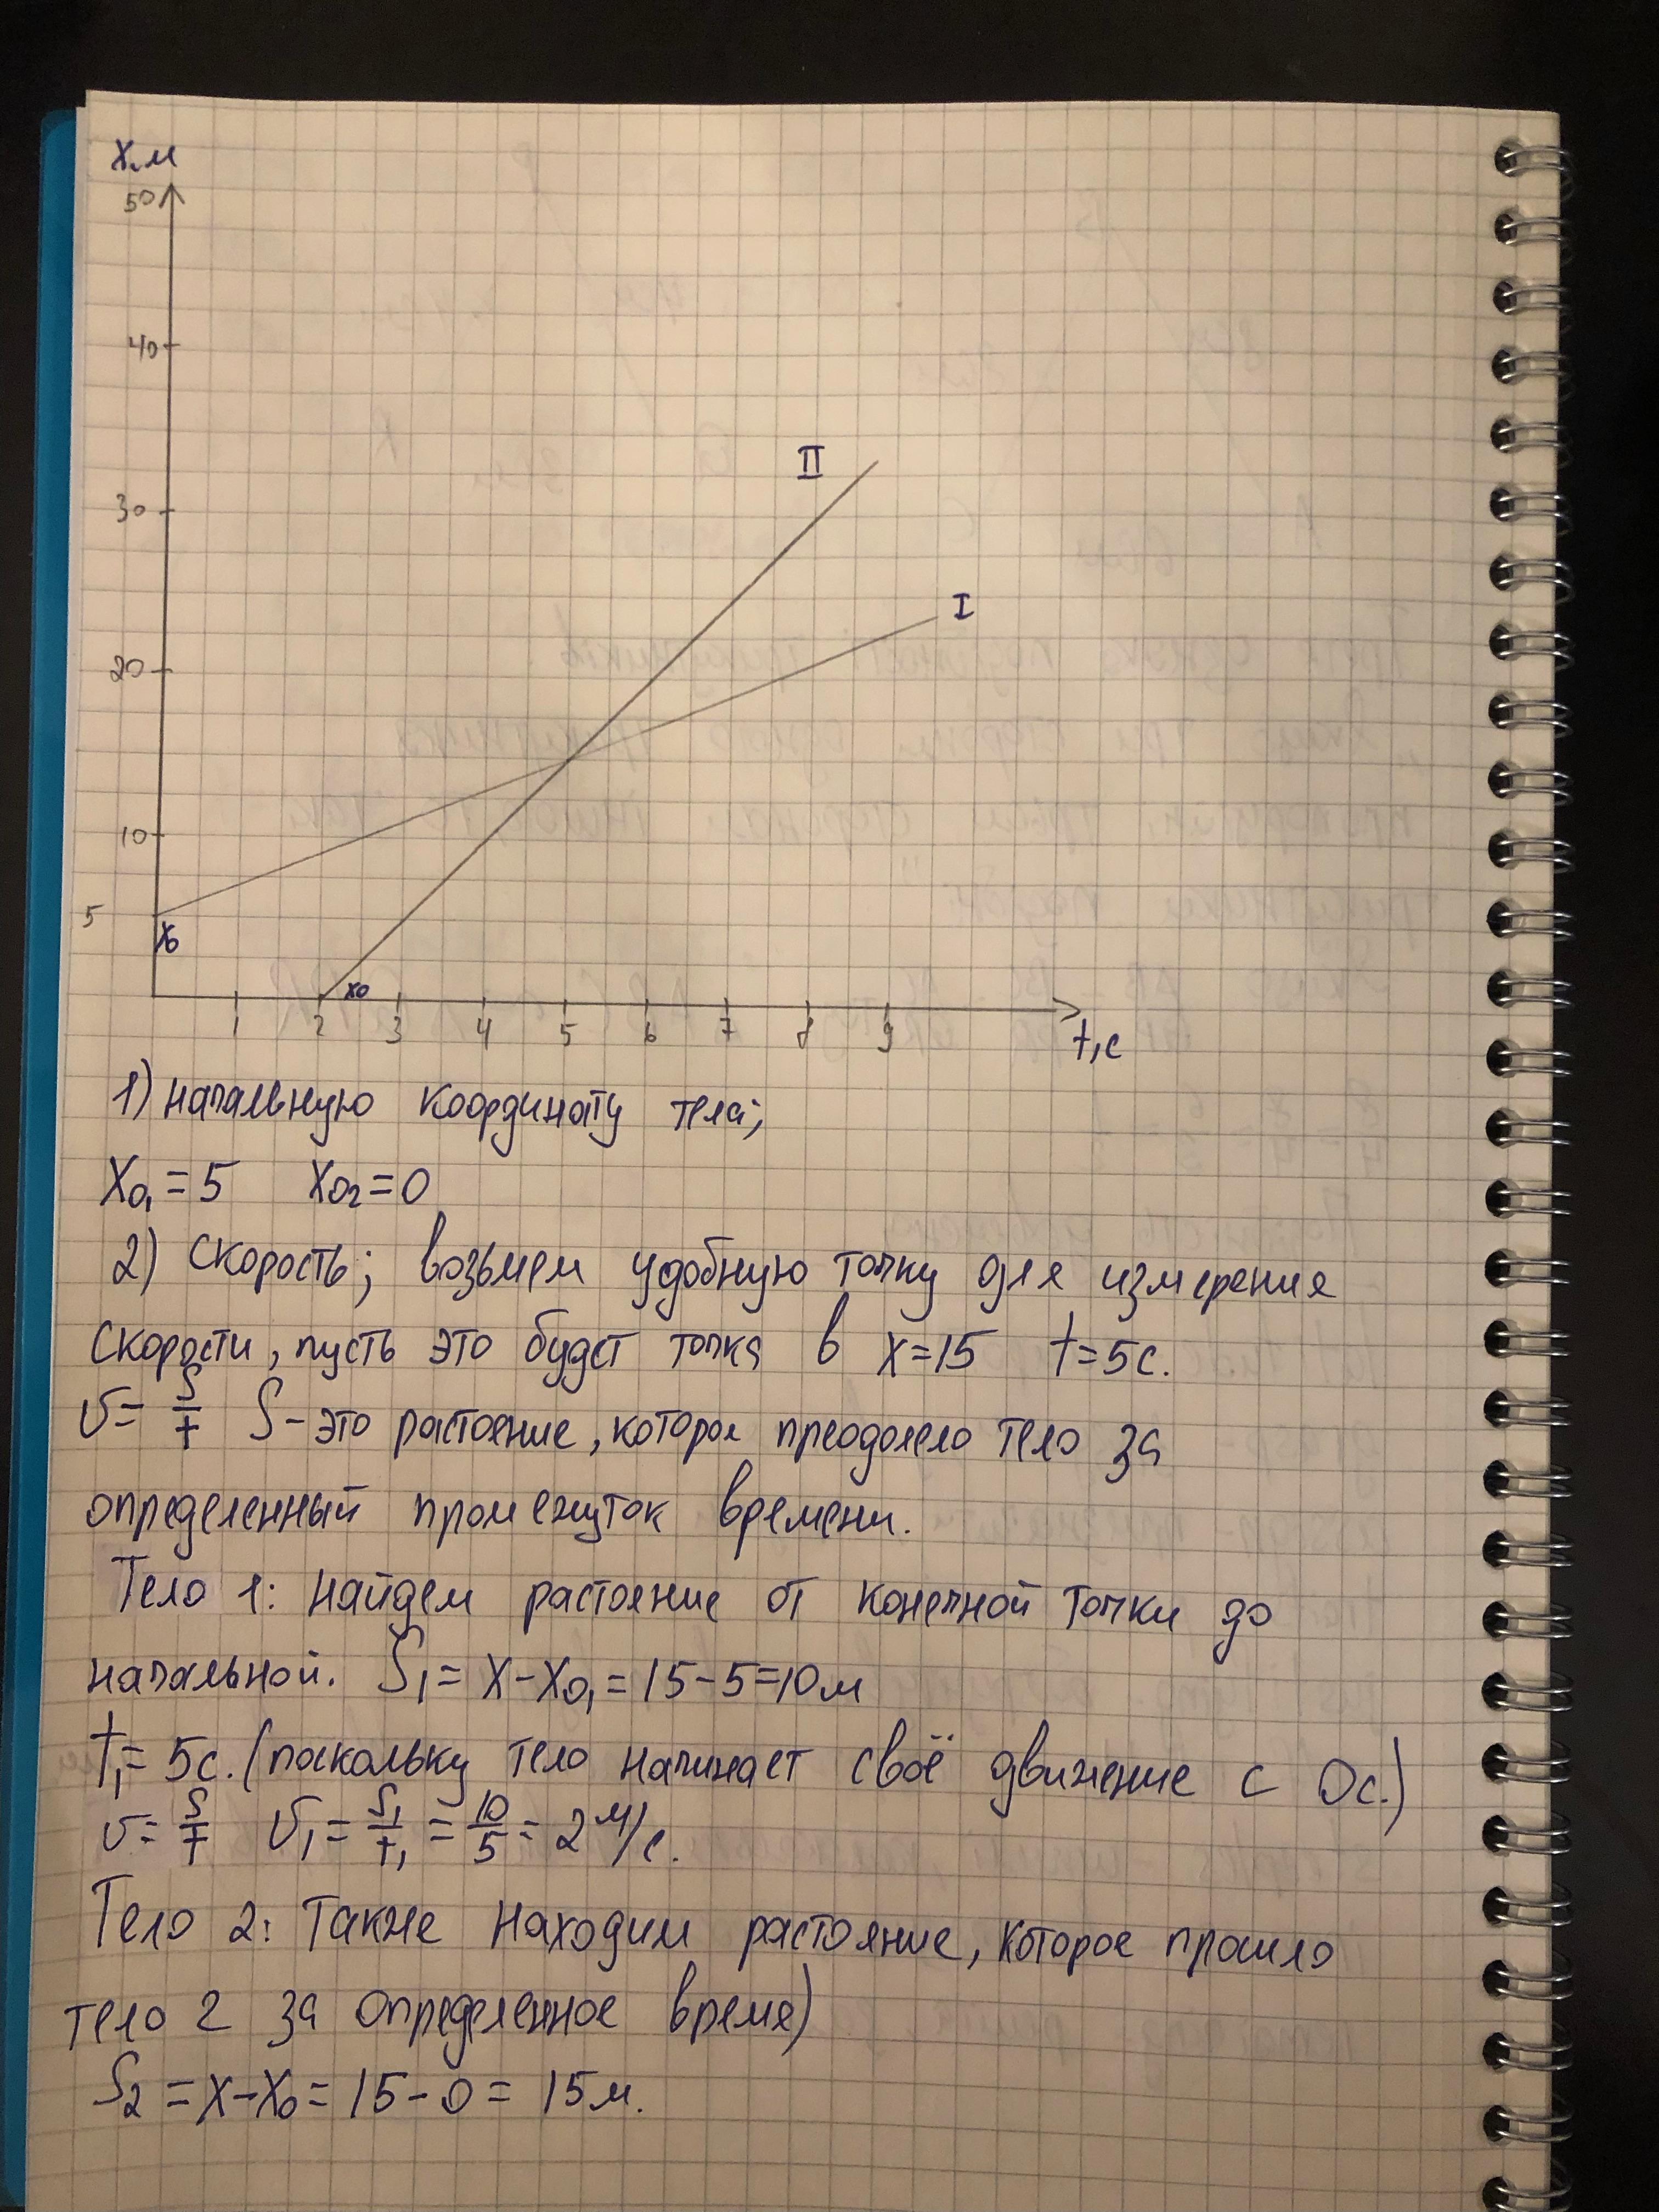 х,м
50
40
30
20
10
5
x₀
II
I
x₀
1 2 3 4 5 6 7 8 9
t,c
1) начальную координату тела;
X₀₁ = 5 X₀₂ = 0
2) Скорость; возьмем удобную точку для измерения
скорости, пусть это будет точка в x=15 t=5c.
υ = S/t S – это растояние, которое преодолело тело за
определенный промежуток времени.
Тело 1: найдем растояние от конечной точки до
начальной. S₁ = x – x₀₁ = 15 – 5 = 10м
t₁ = 5c. (поскольку тело начинает своё движение с 0с.)
υ = S/t υ₁ = S₁/t₁ = 10/5 = 2 м/с.
Тело 2: Также находим растояние, которое прошло
тело 2 за определенное время)
S₂ = x – x₀ = 15 – 0 = 15м.